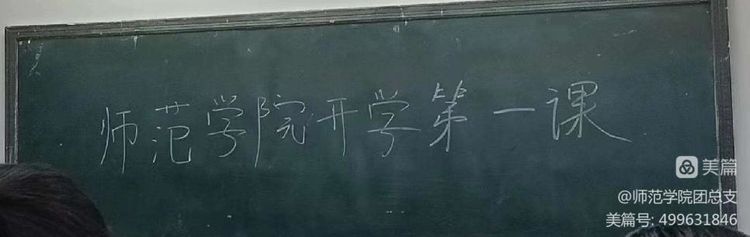 师范学院开学第一课
美篇
@师范学院团总支
美篇号: 499631846